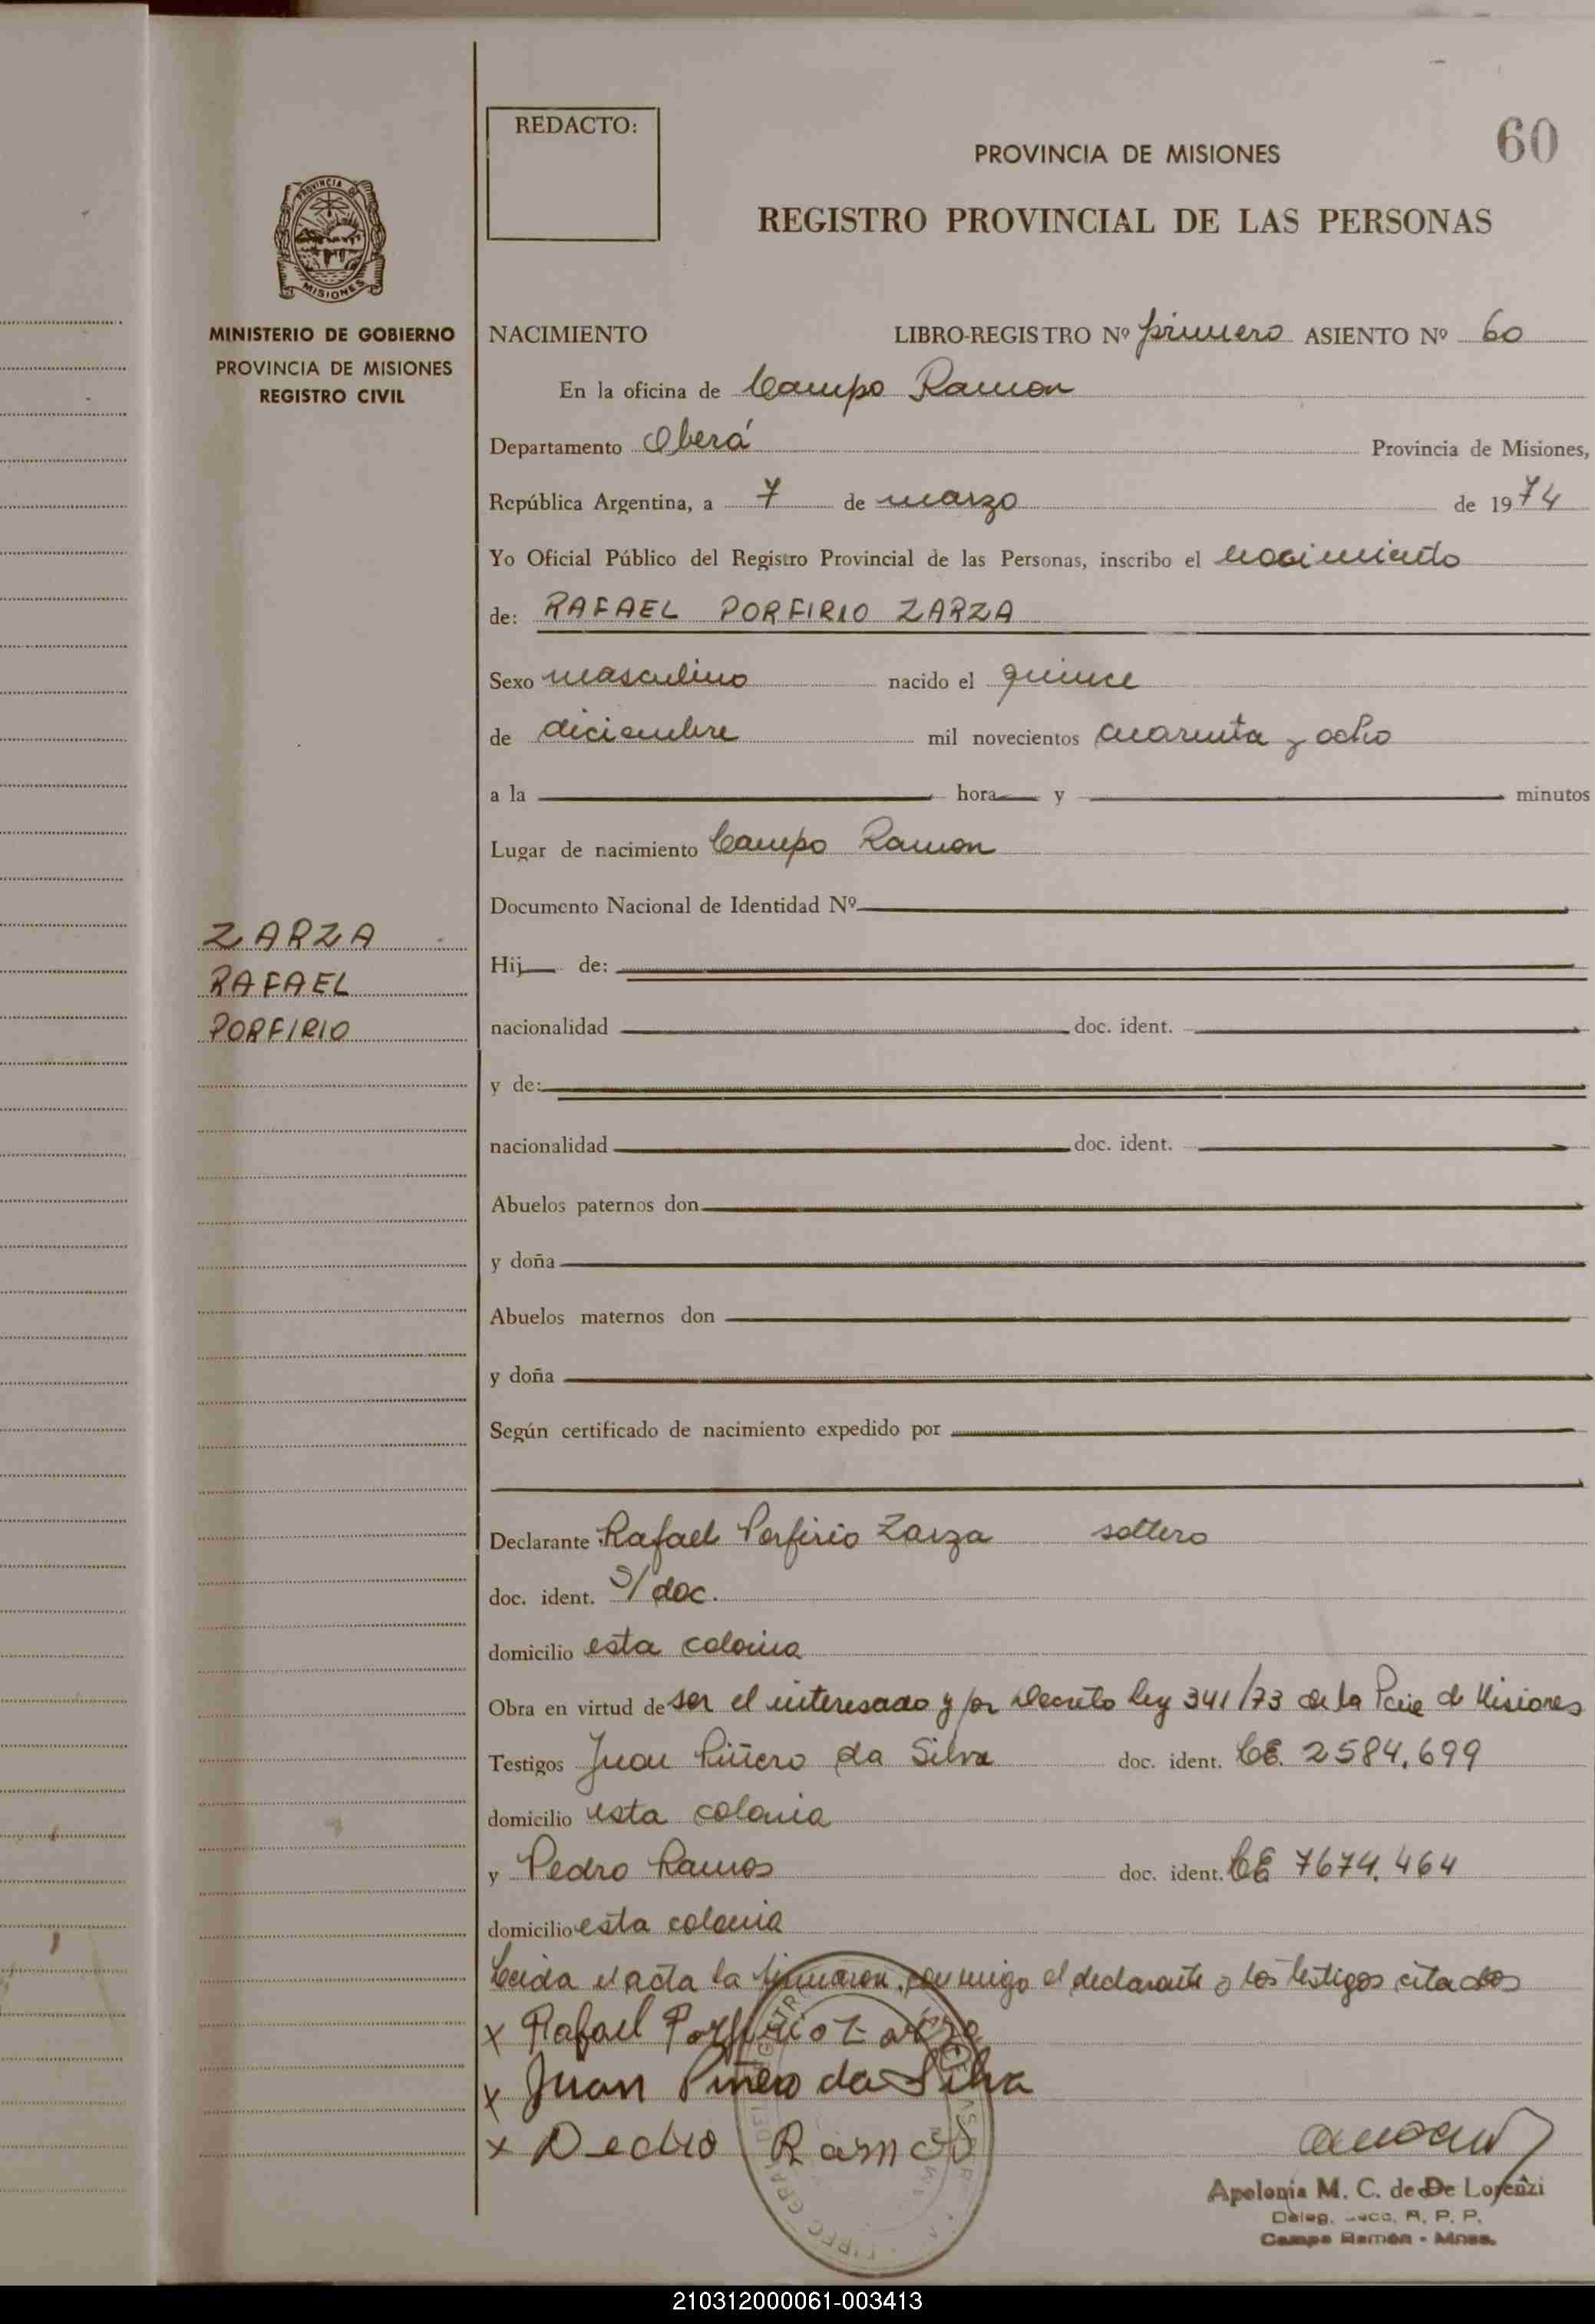 REDACTO:
60
PROVINCIA DE MISIONES
REGISTRO PROVINCIAL DE LAS PERSONAS
PROVINCIA DE
MISIONES
MINISTERIO DE GOBIERNO
PROVINCIA DE MISIONES
REGISTRO CIVIL
ZARZA
RAFAEL
PORFIRIO
NACIMIENTO LIBRO-REGISTRO Nº primero ASIENTO Nº 60
En la oficina de Campo Ramon
Departamento Oberá Provincia de Misiones,
República Argentina, a 7 de marzo de 1974
Yo Oficial Público del Registro Provincial de las Personas, inscribo el nacimiento
de: RAFAEL PORFIRIO ZARZA
Sexo masculino nacido el quince
de diciembre mil novecientos cuarenta y ocho
a la hora y minutos
Lugar de nacimiento Campo Ramon
Documento Nacional de Identidad Nº
Hij de:
nacionalidad doc. ident.
y de:
nacionalidad doc. ident.
Abuelos paternos don
y doña
Abuelos maternos don
y doña
Según certificado de nacimiento expedido por
Declarante Rafael Porfirio Zarza soltero
doc. ident. S/doc.
domicilio esta colonia
Obra en virtud de ser el interesado y por Decreto ley 341/73 de la Pcia de Misiones
Testigos Juan Piñero da Silva doc. ident. CE. 2584.699
domicilio esta colonia
y Pedro Ramos doc. ident. CE 7674.464
domicilio esta colonia
Leida el acta la firmaron conmigo el declarante y los testigos citados
x Rafael Porfirio Zarza
x Juan Piñero da Silva
x Pedro Ramos
Apolonia M. C. de De Lorenzi
Deleg. R. P. P.
Campo Ramón - Mnes.
210312000061-003413